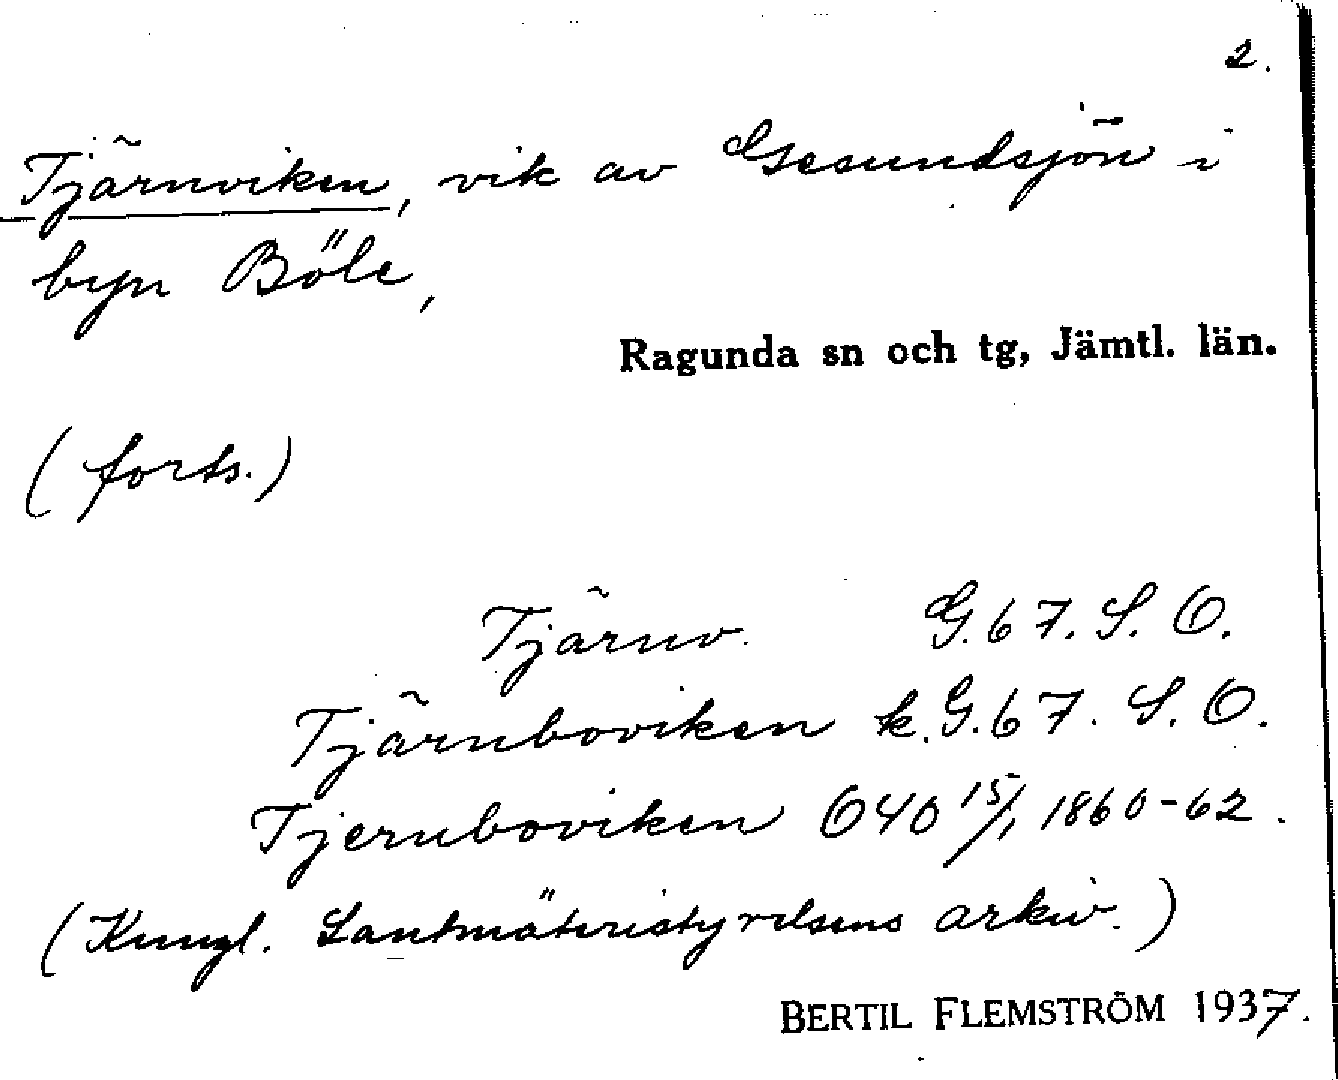 2.
Tjärnviken, vik av Gesundsjön i
byn Böle,
Ragunda sn och tg, Jämtl. län.
(forts.)
Tjärnv. G. 67. S. O.
Tjärnboviken k. G. 67. S. O.
Tjernboviken O40 15/1 1860-62.
(Kungl. Lantmäteristyrelsens arkiv.)
BERTIL FLEMSTRÖM 1937.